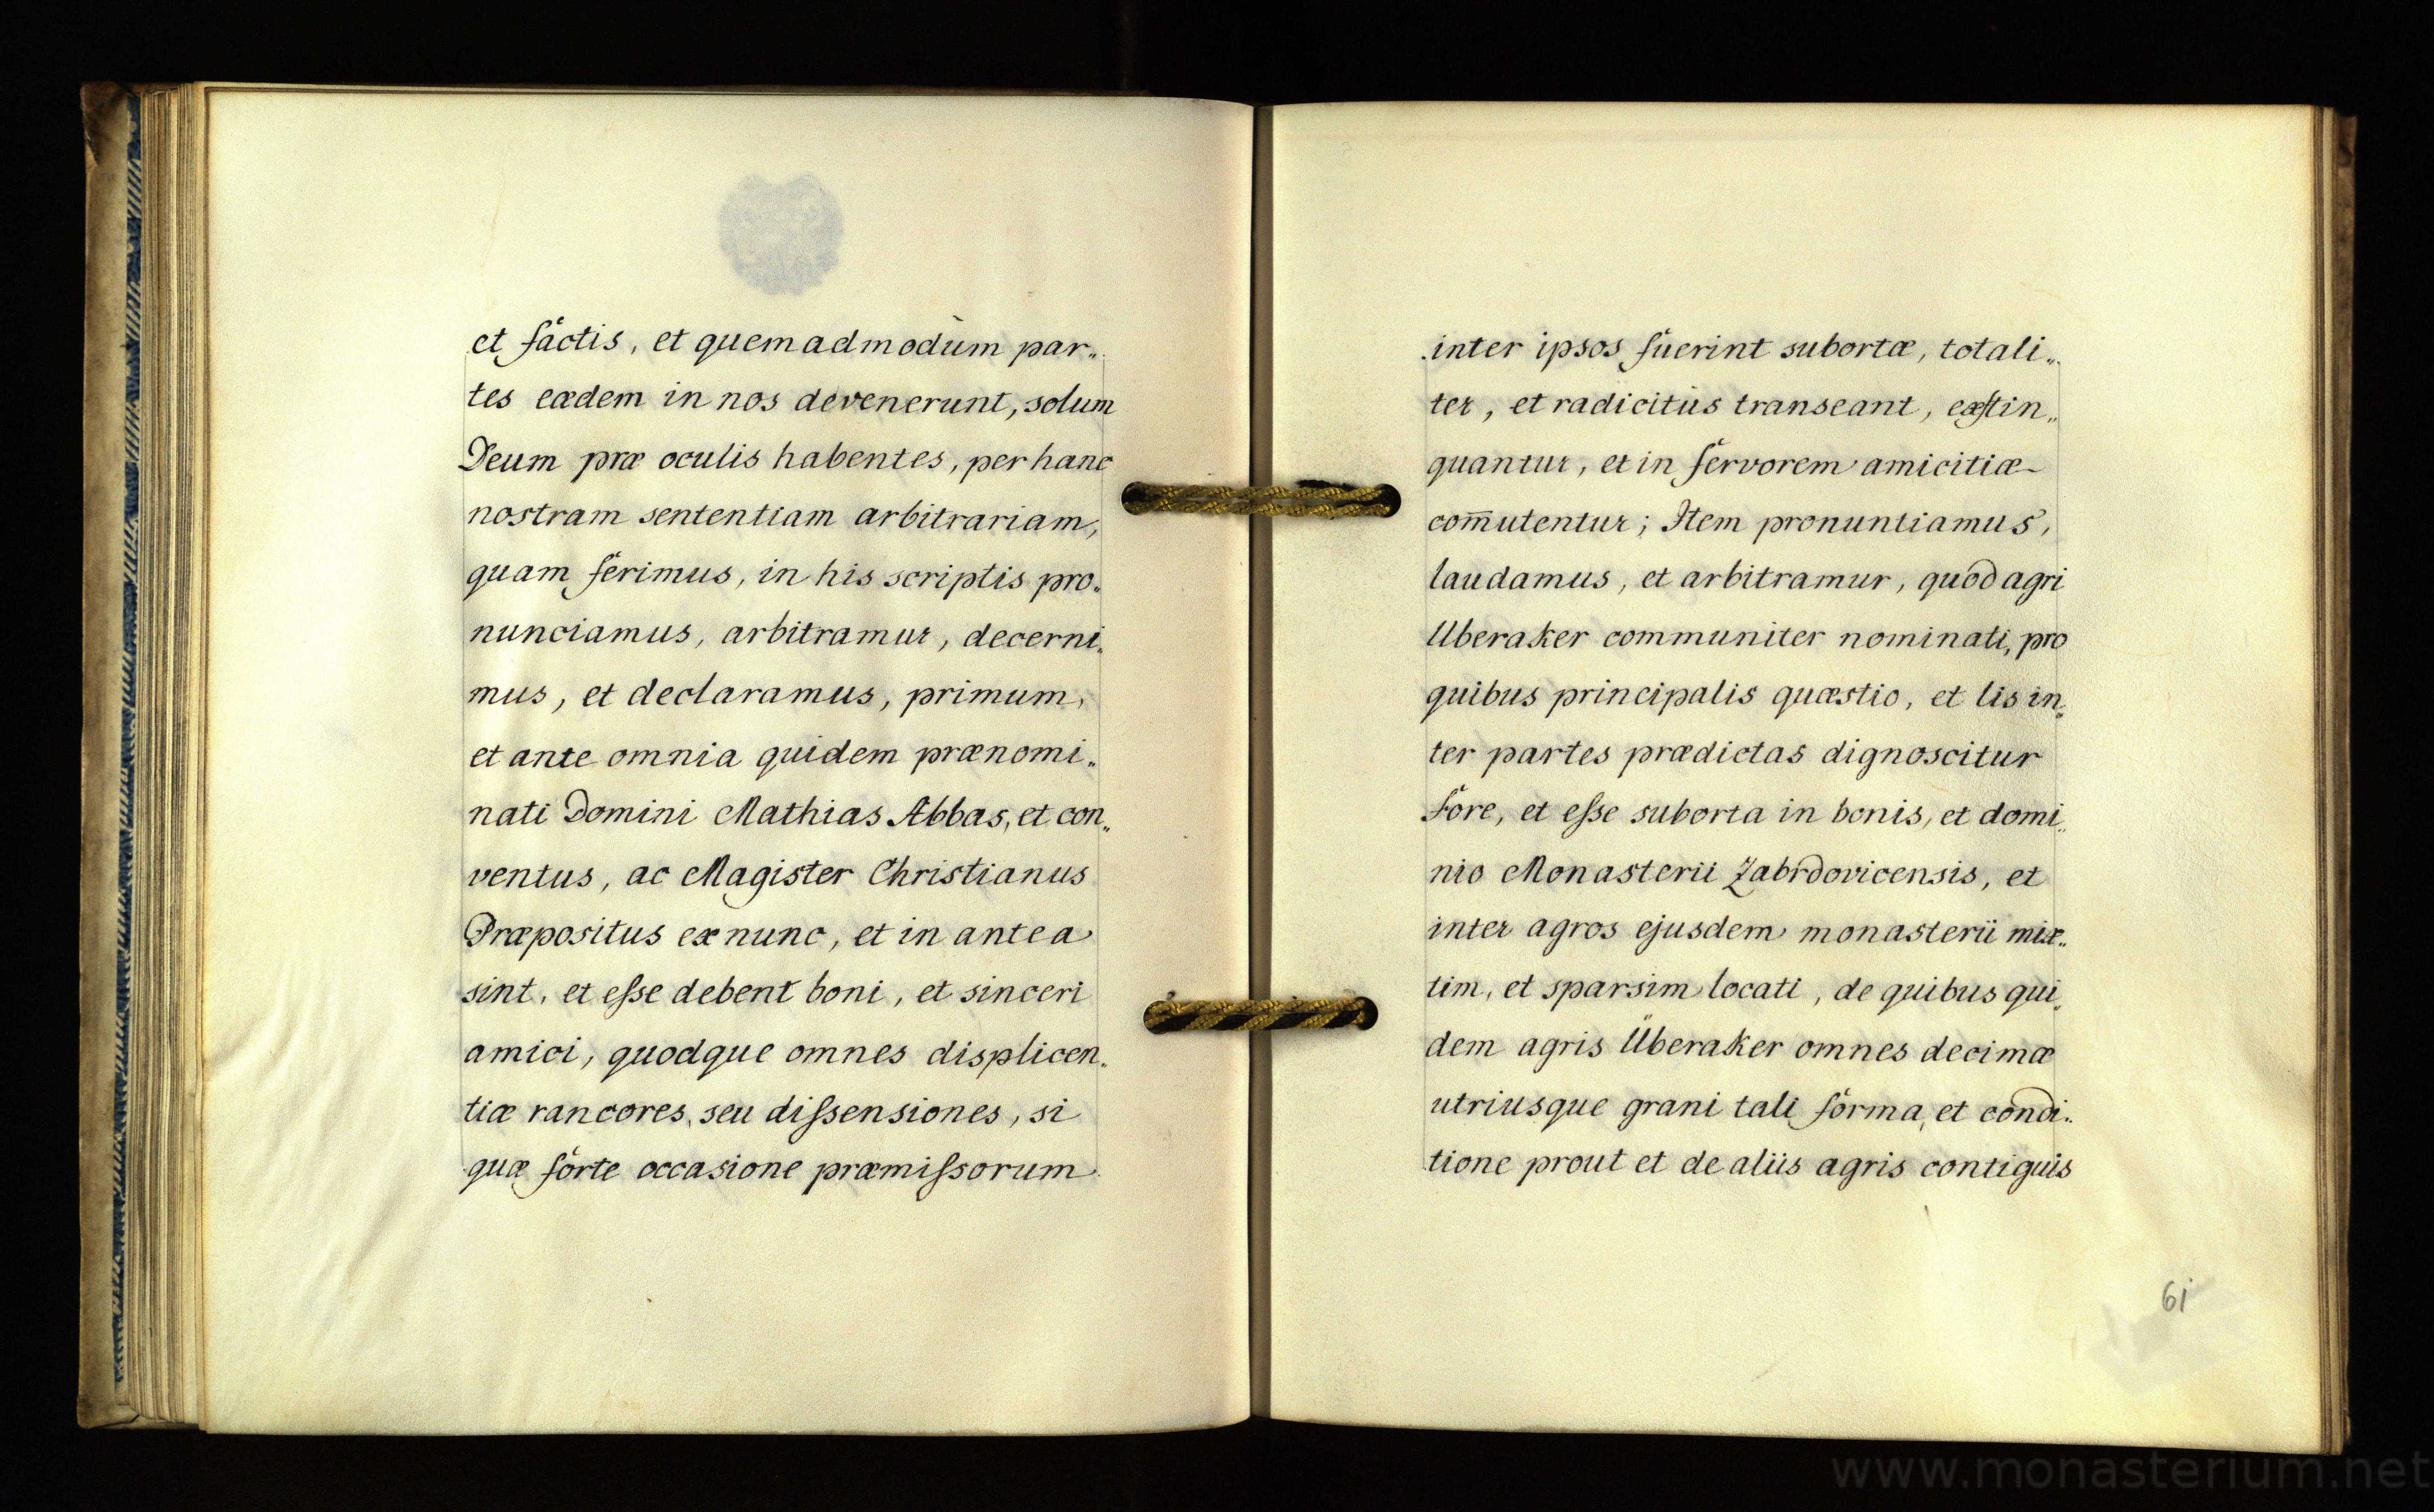 et factis, et quemadmodùm par„
tes eædem in nos devenerunt, solum
Deum præ oculis habentes, per hanc
nostram sententiam arbitrariam,
quam ferimus, in his scriptis pro„
nunciamus, arbitramur, decerni„
mus, et declaramus, primum,
et ante omnia quidem prænomi„
nati Domini Mathias Abbas, et con„
ventus, ac Magister Christianus
Præpositus ex nunc, et in antea
sint, et eſse debent boni, et sinceri
amici, quodque omnes displicen„
tiæ rancores, seu diſsensiones, si
quæ forte occasione præmiſsorum
inter ipsos fuerint subortæ, totali„
ter, et radicitus transeant, exstin„
quantur, et in fervorem amicitiæ
com̄utentur; Item pronuntiamus,
laudamus, et arbitramur, quod agri
Uberaker communiter nominati, pro
quibus principalis quæstio, et lis in„
ter partes prædictas dignoscitur
fore, et eſse suborta in bonis, et domi„
nio Monasterii Zabrdovicensis, et
inter agros ejusdem monasterii mix„
tim, et sparsim locati, de quibus qui„
dem agris Überaker omnes decimæ
utriusque grani tali forma, et condi„
tione prout et de aliis agris contiguis
61
www.monasterium.net